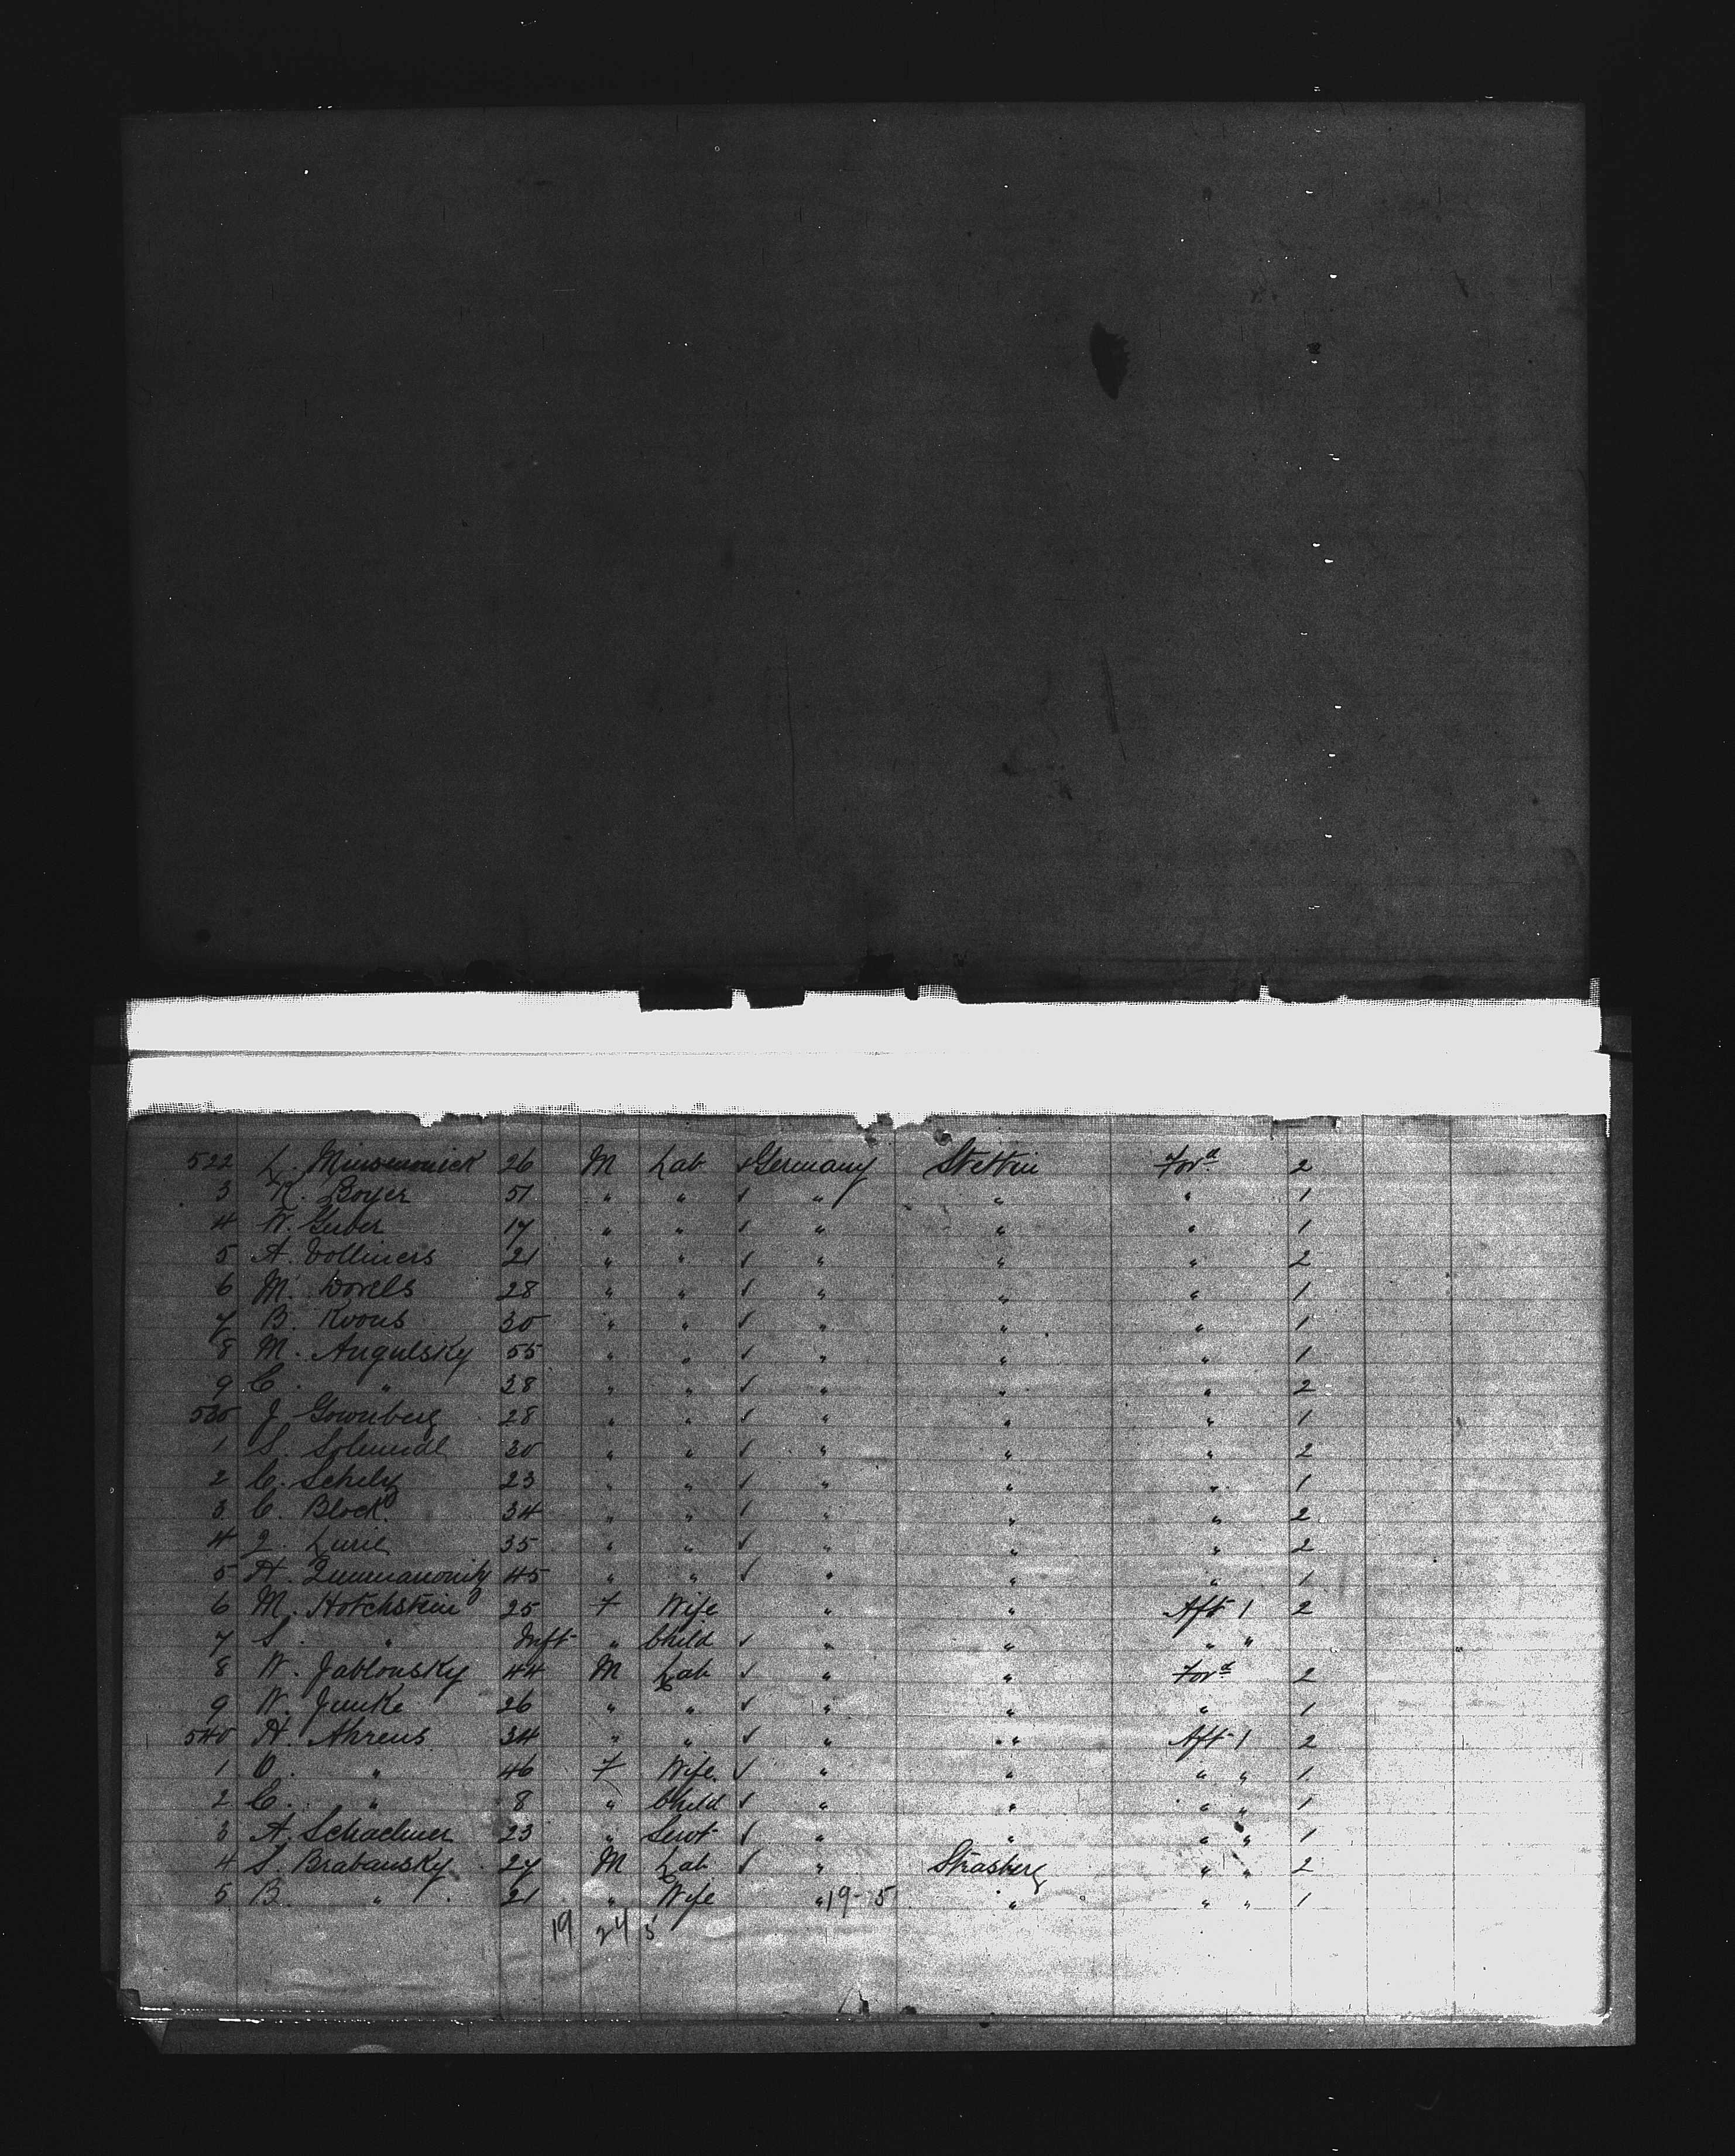 522 L. Minsemonick 26 M Lab ✓ Germany Stettin Forᵈ 2
3 R. Boyer 51 " " ✓ " " " 1
4 W. Geiber 17 " " ✓ " " " 1
5 A. Vollmers 21 " " ✓ " " " 2
6 M. Worels 28 " " ✓ " " " 1
7 B. Kvous 30 " " ✓ " " " 1
8 M. Angulsky 55 " " ✓ " " " 1
9 C. " 38 " " ✓ " " " 2
530 J. Gownberg 28 " " ✓ " " " 1
1 S. 30 " " ✓ " " " 2
2 C. Schelz 23 " " ✓ " " " 1
3 C. Block 34 " " ✓ " " " 2
4 Lurie 35 " " ✓ " " " 2
5 H. 45 " " ✓ " " " 1
6 M. Hotchstein 25 F Wife " " Aft 1 2
7 S. " Inft " Child ✓ " " " "
8 W. Jablonsky 44 M Lab ✓ " " Forᵈ 2
9 W. Junke 26 " " ✓ " " " 1
540 H. Ahrens 34 " " ✓ " " Aft 1 2
1 O. " 46 F Wife ✓ " " " " 1
2 C. " 8 " Child ✓ " " " " 1
3 A. Schachner 23 " Servt ✓ " " " " 1
4 S. Brabansky 27 M Lab ✓ " Strasberg " " 2
5 B. " 21 " Wife " 19-5 " " " 1
19 24 5